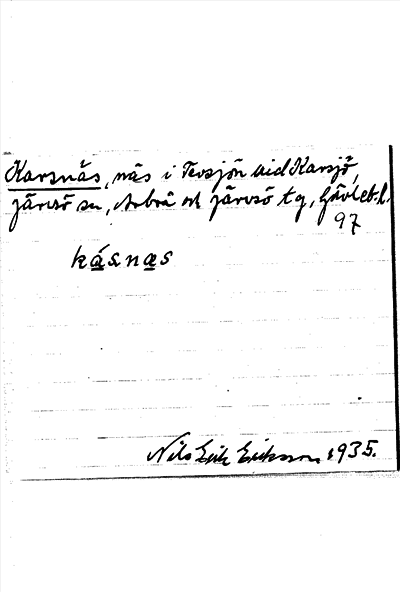 Karsnäs, näs i Tevsjön vid Karsjö,
järvsö sn, Arbrå ock järvsö tg, Gävleb. l.
97
kásnæs
Nils Erik Eriksson 1935.